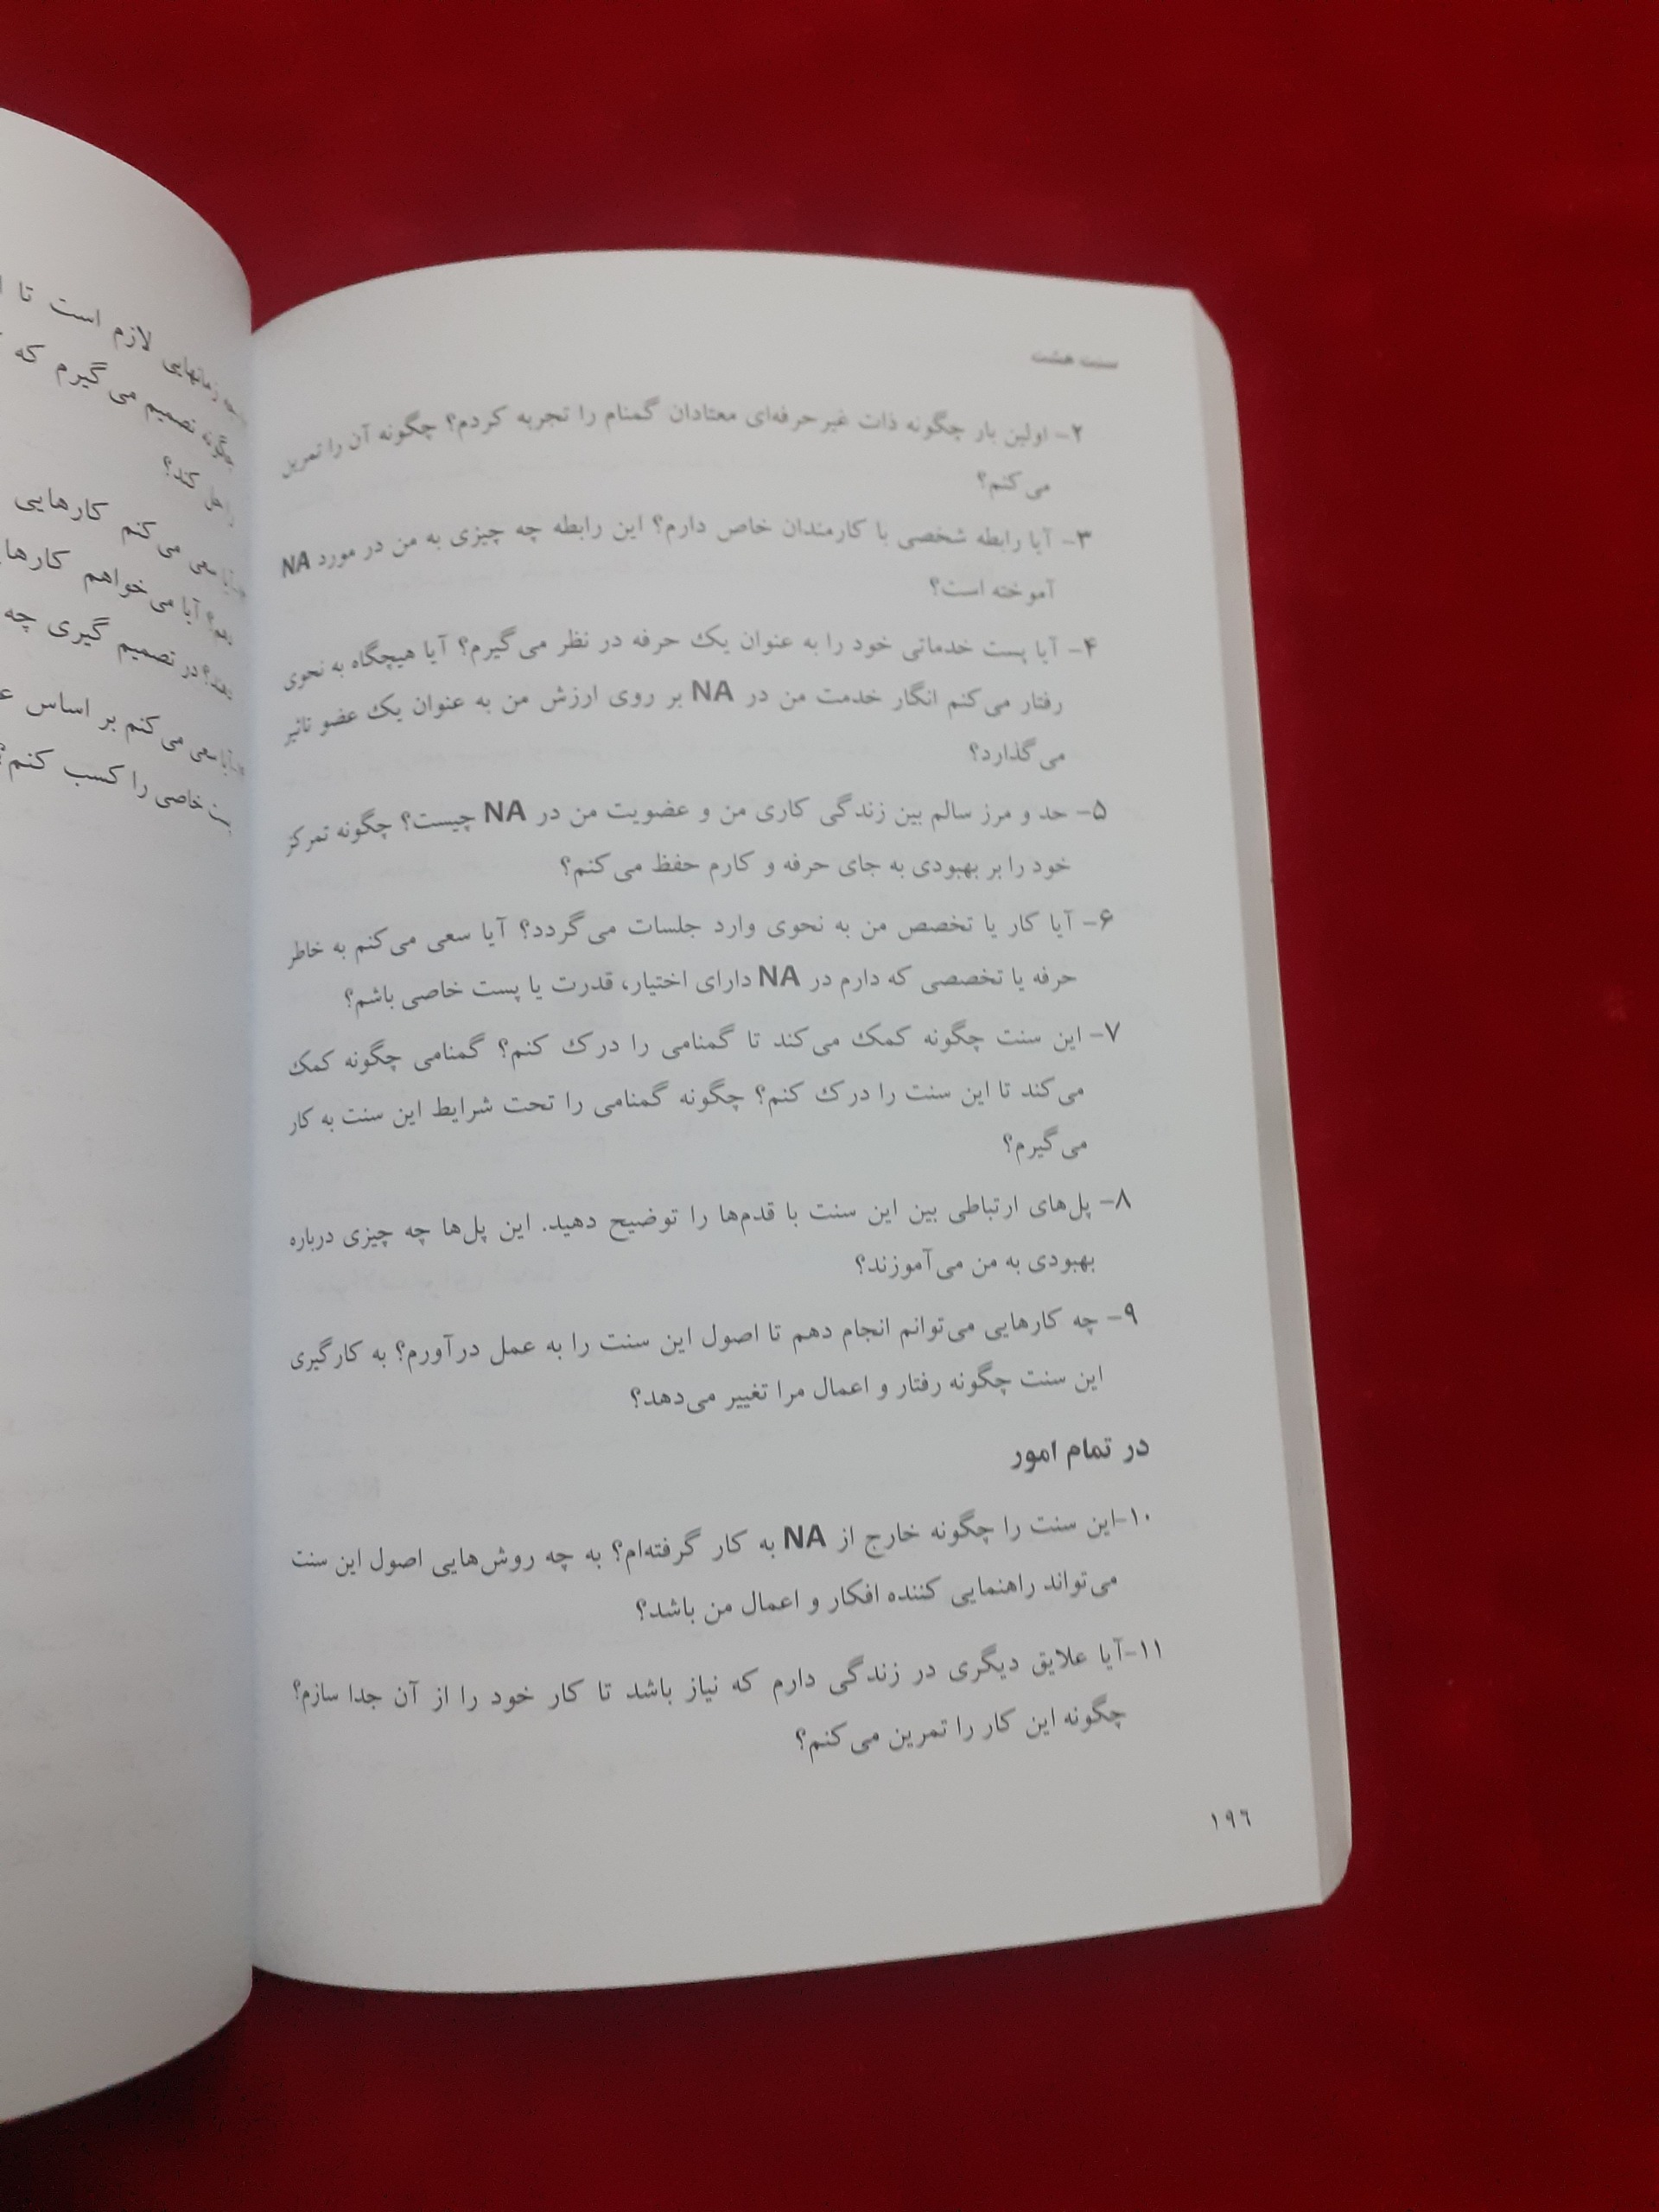 سنت هشت
۲- اولین بار چگونه ذات غیرحرفه‌ای معتادان گمنام را تجربه کردم؟ چگونه آن را تمرین
می‌کنم؟
۳- آیا رابطه شخصی با کارمندان خاص دارم؟ این رابطه چه چیزی به من در مورد NA
آموخته است؟
۴- آیا پست خدماتی خود را به عنوان یک حرفه در نظر می‌گیرم؟ آیا هیچگاه به نحوی
رفتار می‌کنم انگار خدمت من در NA بر روی ارزش من به عنوان یک عضو تاثیر
می‌گذارد؟
۵- حد و مرز سالم بین زندگی کاری من و عضویت من در NA چیست؟ چگونه تمرکز
خود را بر بهبودی به جای حرفه و کارم حفظ می‌کنم؟
۶- آیا کار یا تخصص من به نحوی وارد جلسات می‌گردد؟ آیا سعی می‌کنم به خاطر
حرفه یا تخصصی که دارم در NA دارای اختیار، قدرت یا پست خاصی باشم؟
۷- این سنت چگونه کمک می‌کند تا گمنامی را درک کنم؟ گمنامی چگونه کمک
می‌کند تا این سنت را درک کنم؟ چگونه گمنامی را تحت شرایط این سنت به کار
می‌گیرم؟
۸- پل‌های ارتباطی بین این سنت با قدم‌ها را توضیح دهید. این پل‌ها چه چیزی درباره
بهبودی به من می‌آموزند؟
۹- چه کارهایی می‌توانم انجام دهم تا اصول این سنت را به عمل درآورم؟ به کارگیری
این سنت چگونه رفتار و اعمال مرا تغییر می‌دهد؟
در تمام امور
۱۰-این سنت را چگونه خارج از NA به کار گرفته‌ام؟ به چه روش‌هایی اصول این سنت
می‌تواند راهنمایی کننده افکار و اعمال من باشد؟
۱۱-آیا علایق دیگری در زندگی دارم که نیاز باشد تا کار خود را از آن جدا سازم؟
چگونه این کار را تمرین می‌کنم؟
۱۹۶
زمانهایی لازم است تا
چگونه تصمیم می‌گیرم که
حل کند؟
سعی می‌کنم کارهایی
آیا می‌خواهم کارها
در تصمیم گیری چه
سعی می‌کنم بر اساس
خاصی را کسب کنم؟